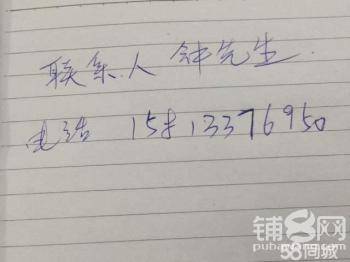 联系人 钟先生
电话 15813376950
铺多网
58同城